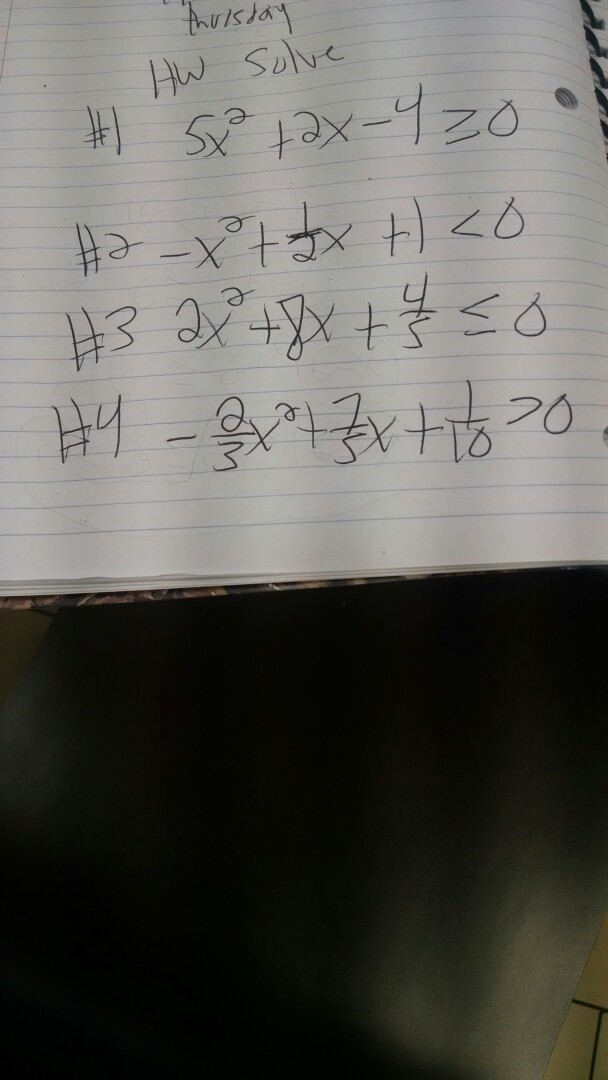 Thursday
HW Solve
#1 5x² + 2x - 4 ≥ 0
#2 -x² + 1/2x + 1 < 0
#3 2x² + 8x + 4/5 ≤ 0
#4 -2/3x² + 7/5x + 1/10 > 0